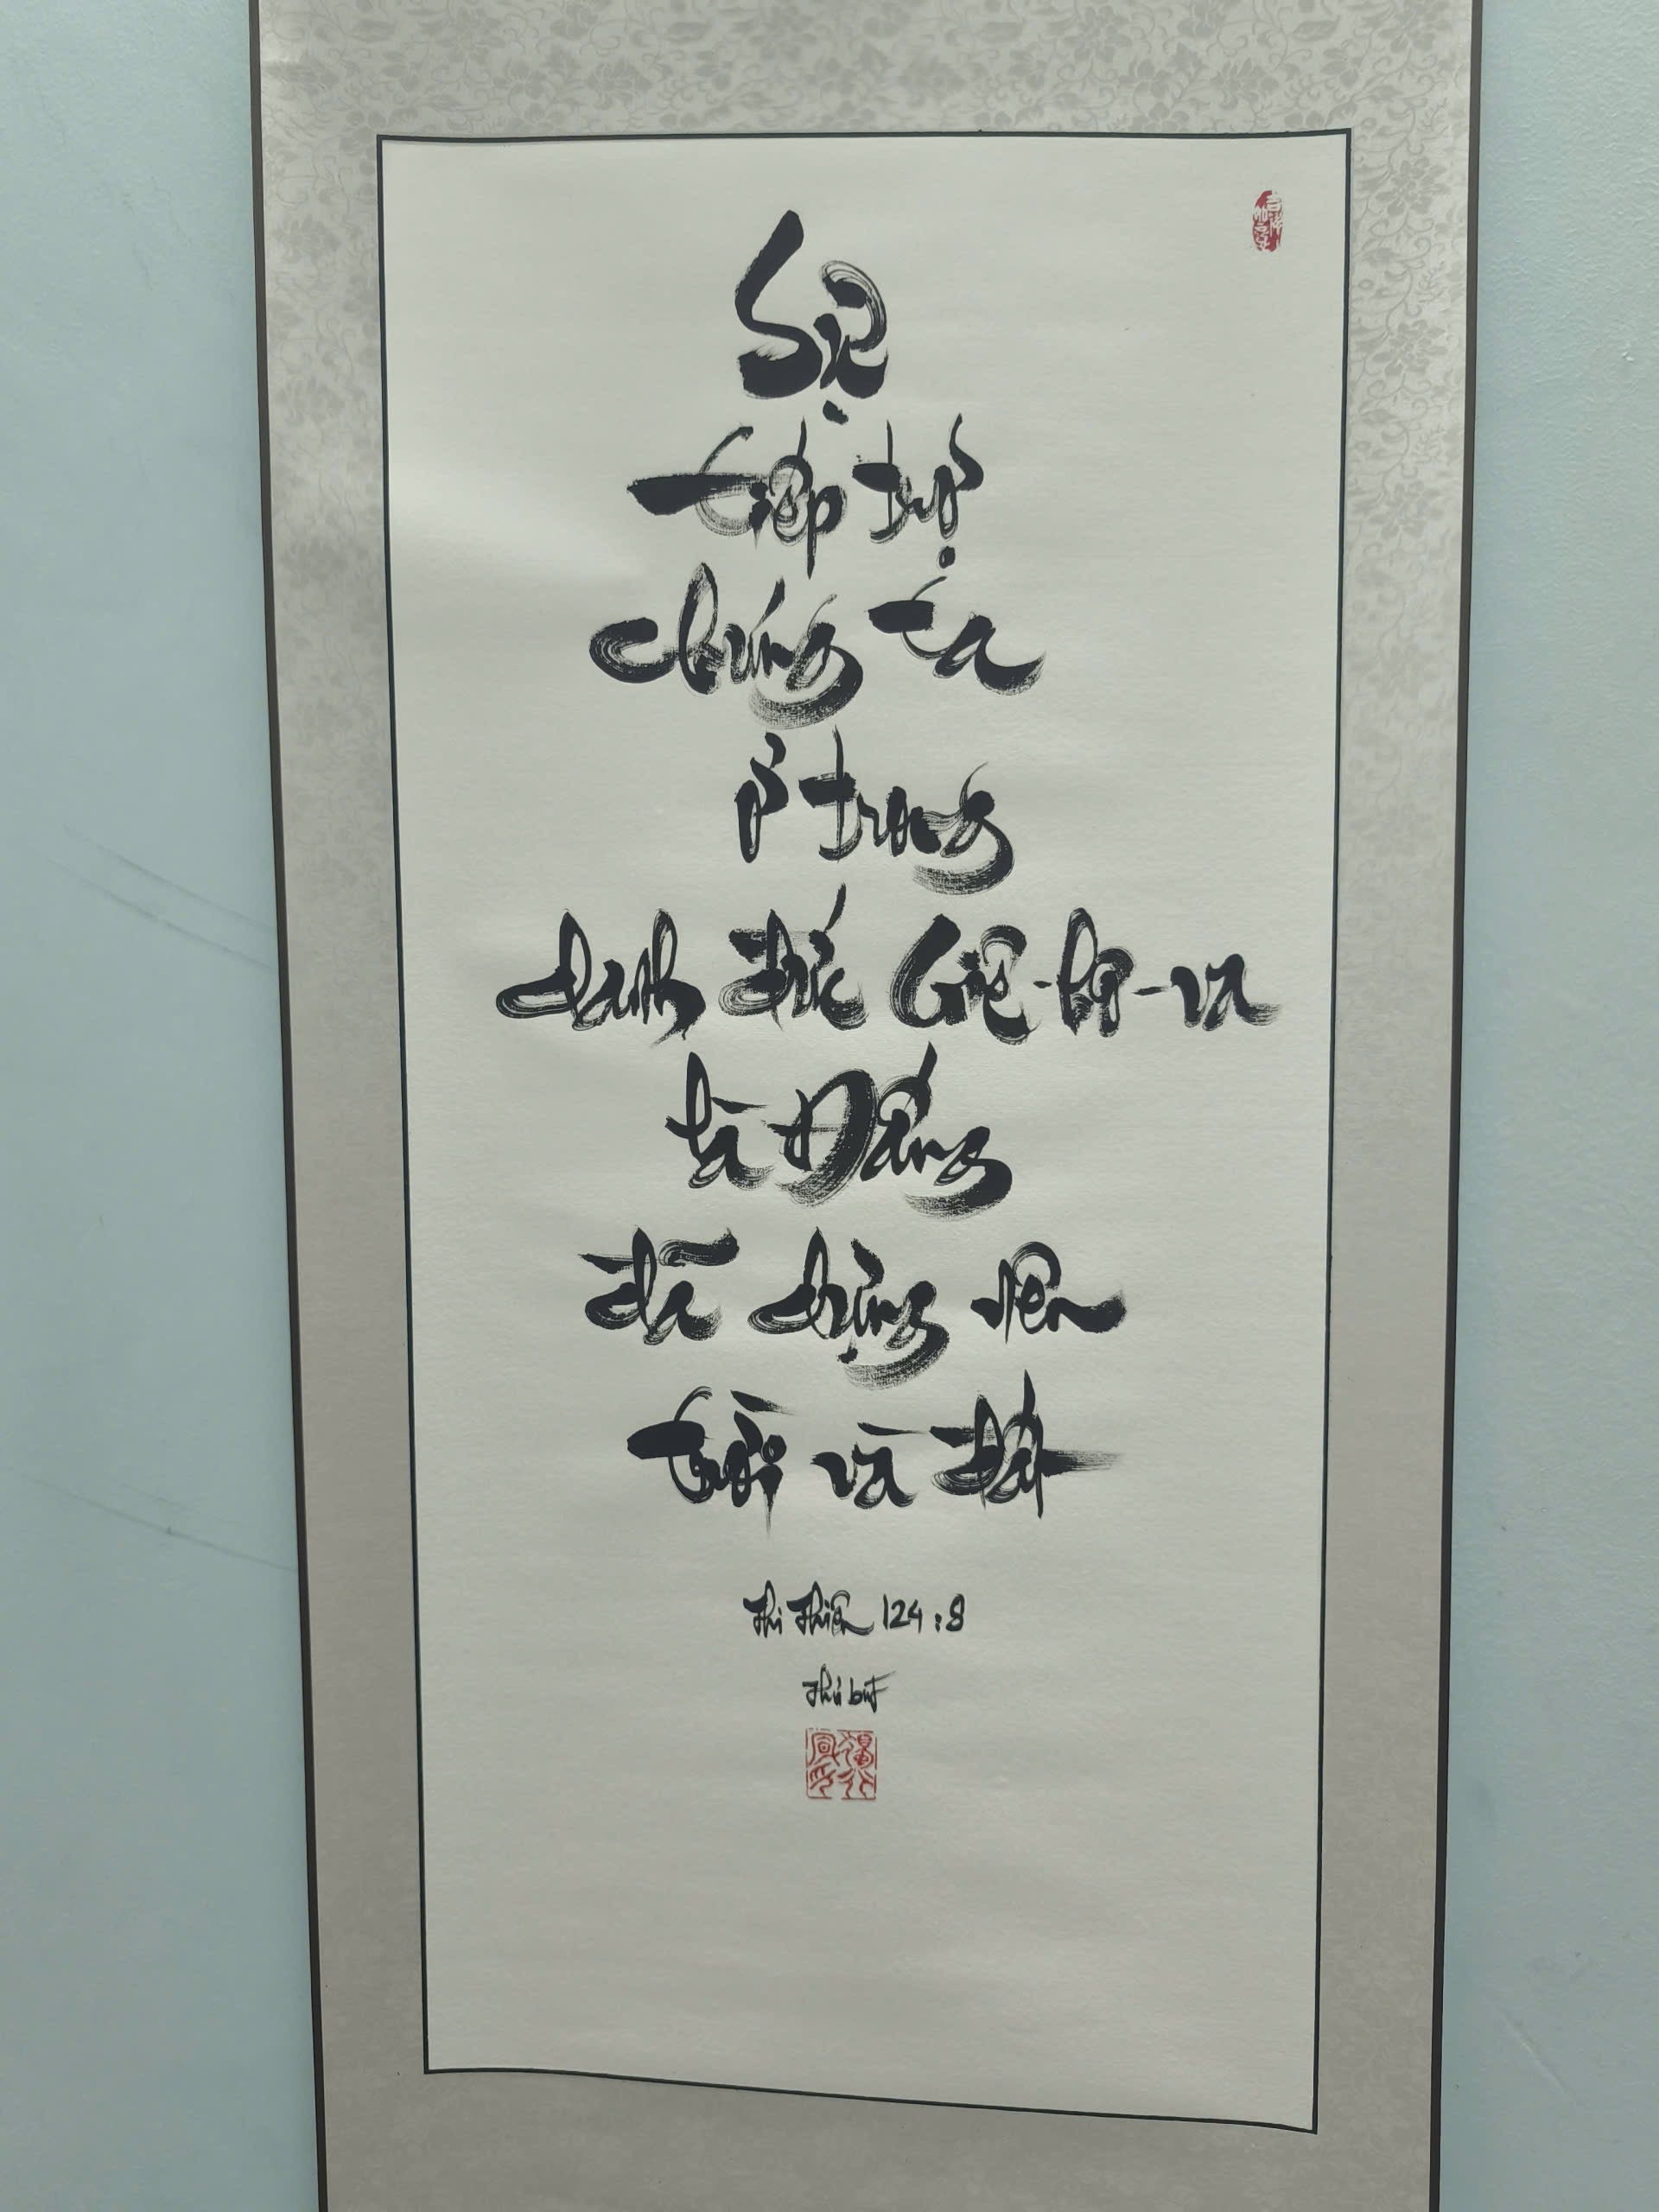 Sự
tiếp trợ
chúng ta
ở trong
danh Đức Giê-hô-va
là Đấng
đã dựng nên
trời và đất
Thi Thiên 124:8
Thủ bút